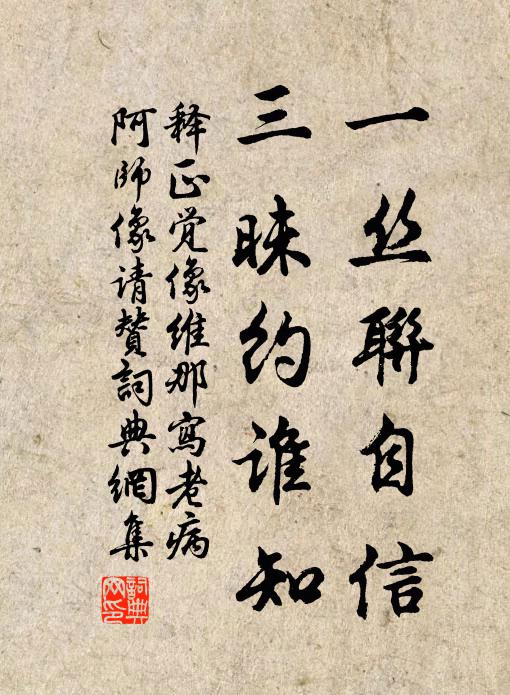 一丝聯自信
三昧约谁知
释正觉像维那写老病
阿师像请赞词典網集
詞典网印